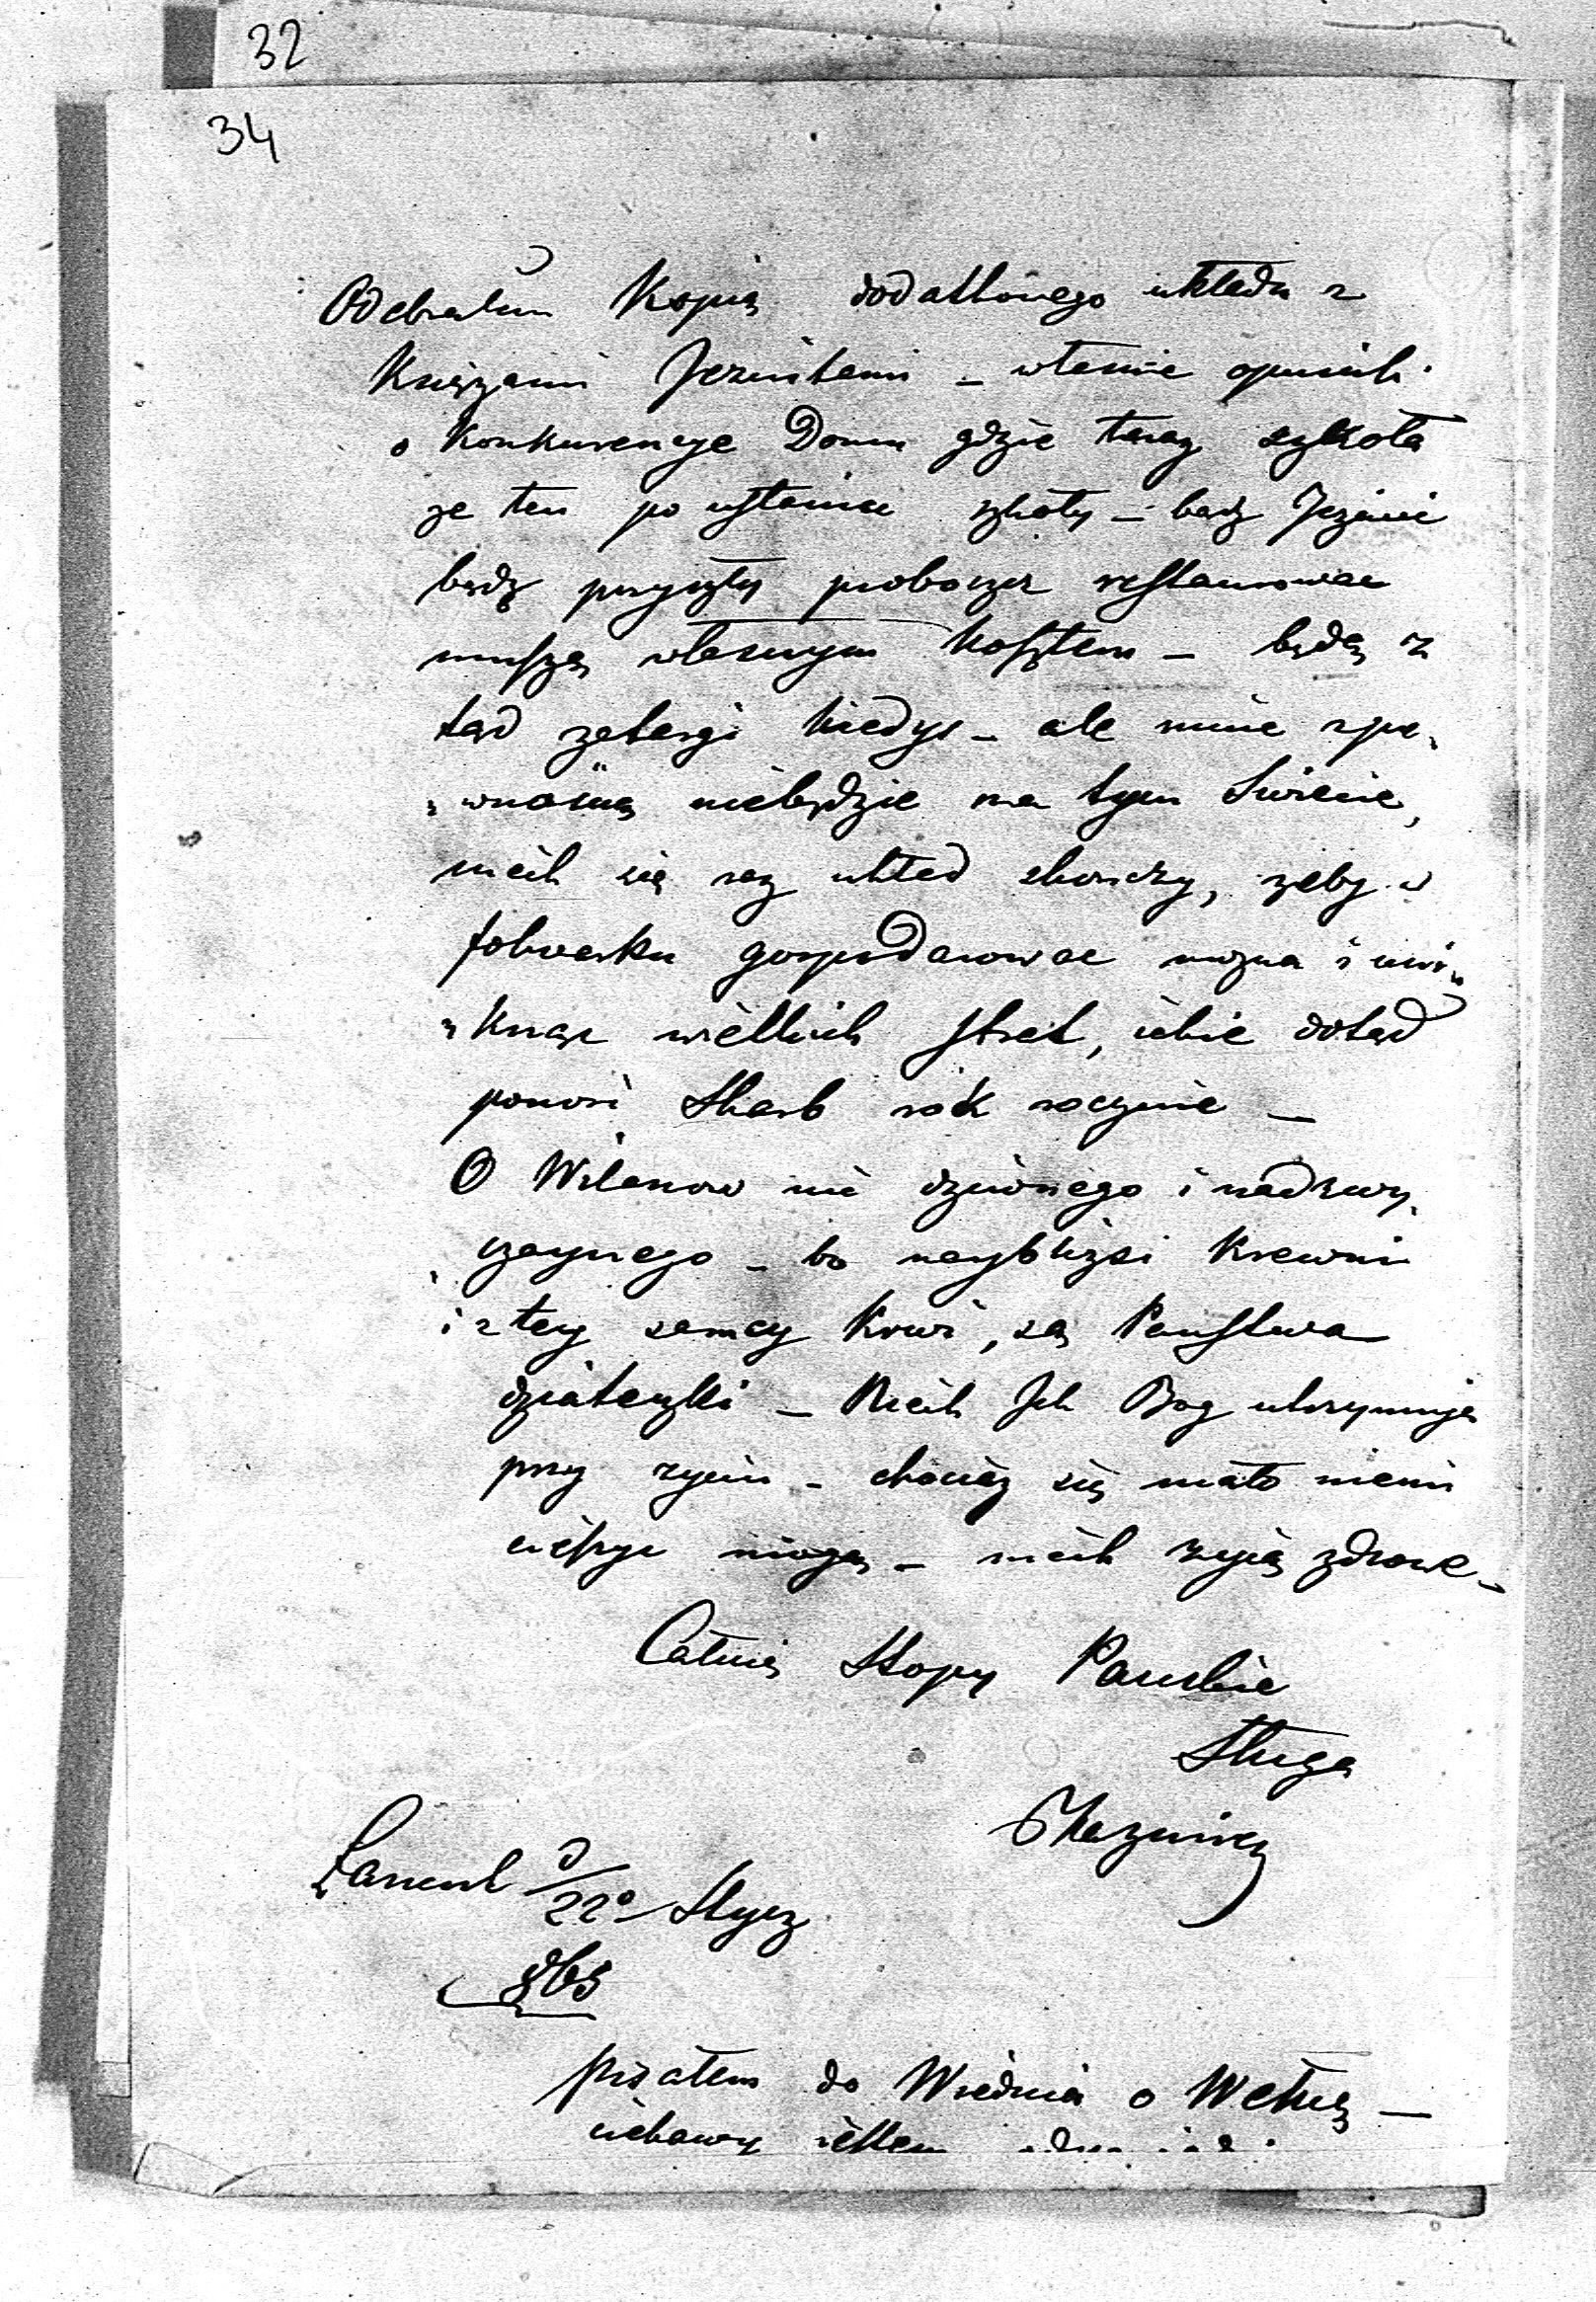 32
34
Odebrałem Kopią dodatkowego układu z
Księżami Jezuitami – właśnie opuścili
o Konkurencje Domu gdzie teraz szkoła
że ten po ustaniu szkoły – bądź Jezuici
bądź przyszły proboszcz restaurować
muszą własnym kosztem – będą z
tąd zatargi kiedyś – ale mnie zpe,
„wnością niebędzie na tym Swiecie,
niech się raz układ skończy, żeby w
folwarku gospodarować można i uni„
„Knąć wielkich strat, iakie dotąd
ponosi Skarb rok rocznie –
O Wilanow nic dziwnego i nadzwy„
„czaynego – bo naybliżsi Krewni
i z tey samey Krwi, są Państwa
dziateczki – Niech Ich Bog utrzymuje
przy życiu – chociaż się mało niemi
cieszyć mogą – niech żyią zdrowe –
Całuię Stopy Pańskie
Sługa
Łancut d/22º Stycz
865
pisałem do Wiednia o Wełnę –
ciekawy iestem